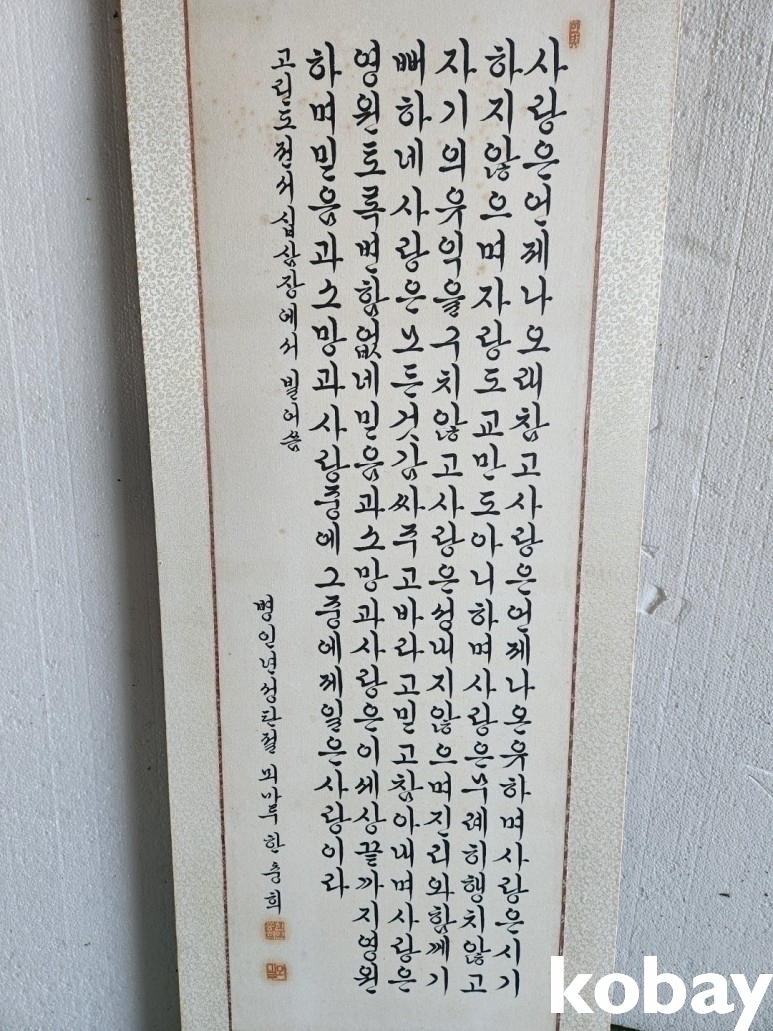 사랑은언제나오래참고사랑은언제나온유하며사랑은시기
하지않으며자랑도교만도아니하며사랑은무례히행치않고
자기의유익을구치않고사랑은성내지않으며진리와함께기
뻐하네사랑은모든것감싸주고바라고믿고참아내며사랑은
영원토록변함없네믿음과소망과사랑은이세상끝까지영원
하며믿음과소망과사랑중에그중에제일은사랑이라
고린도전서십삼장에서빌어씀
병인년성탄절 뫼마루한충희
kobay